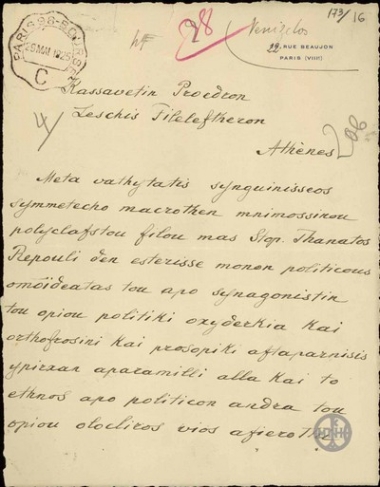 179/16
PARIS 96
26 MAI 1925
C
28
Venizelos
22, RUE BEAUJON
PARIS (VIIIe)
Kassavetin Proedron
Leschis Fileleftheron
Athènes
Meta vathytatis synguinisseos
symmetecho macrothen mnimossinou
polyclafstou filou mas Stop. Thanatos
Repouli den esterisse monon politicous
omoideatas tou apo synagonistin
tou opiou politiki oxyderkia kai
orthofrosini kai prosopiki aftaparnisis
ypirxan aparamilli alla kai to
ethnos apo politicon andra tou
opiou olocliros vios afierothi